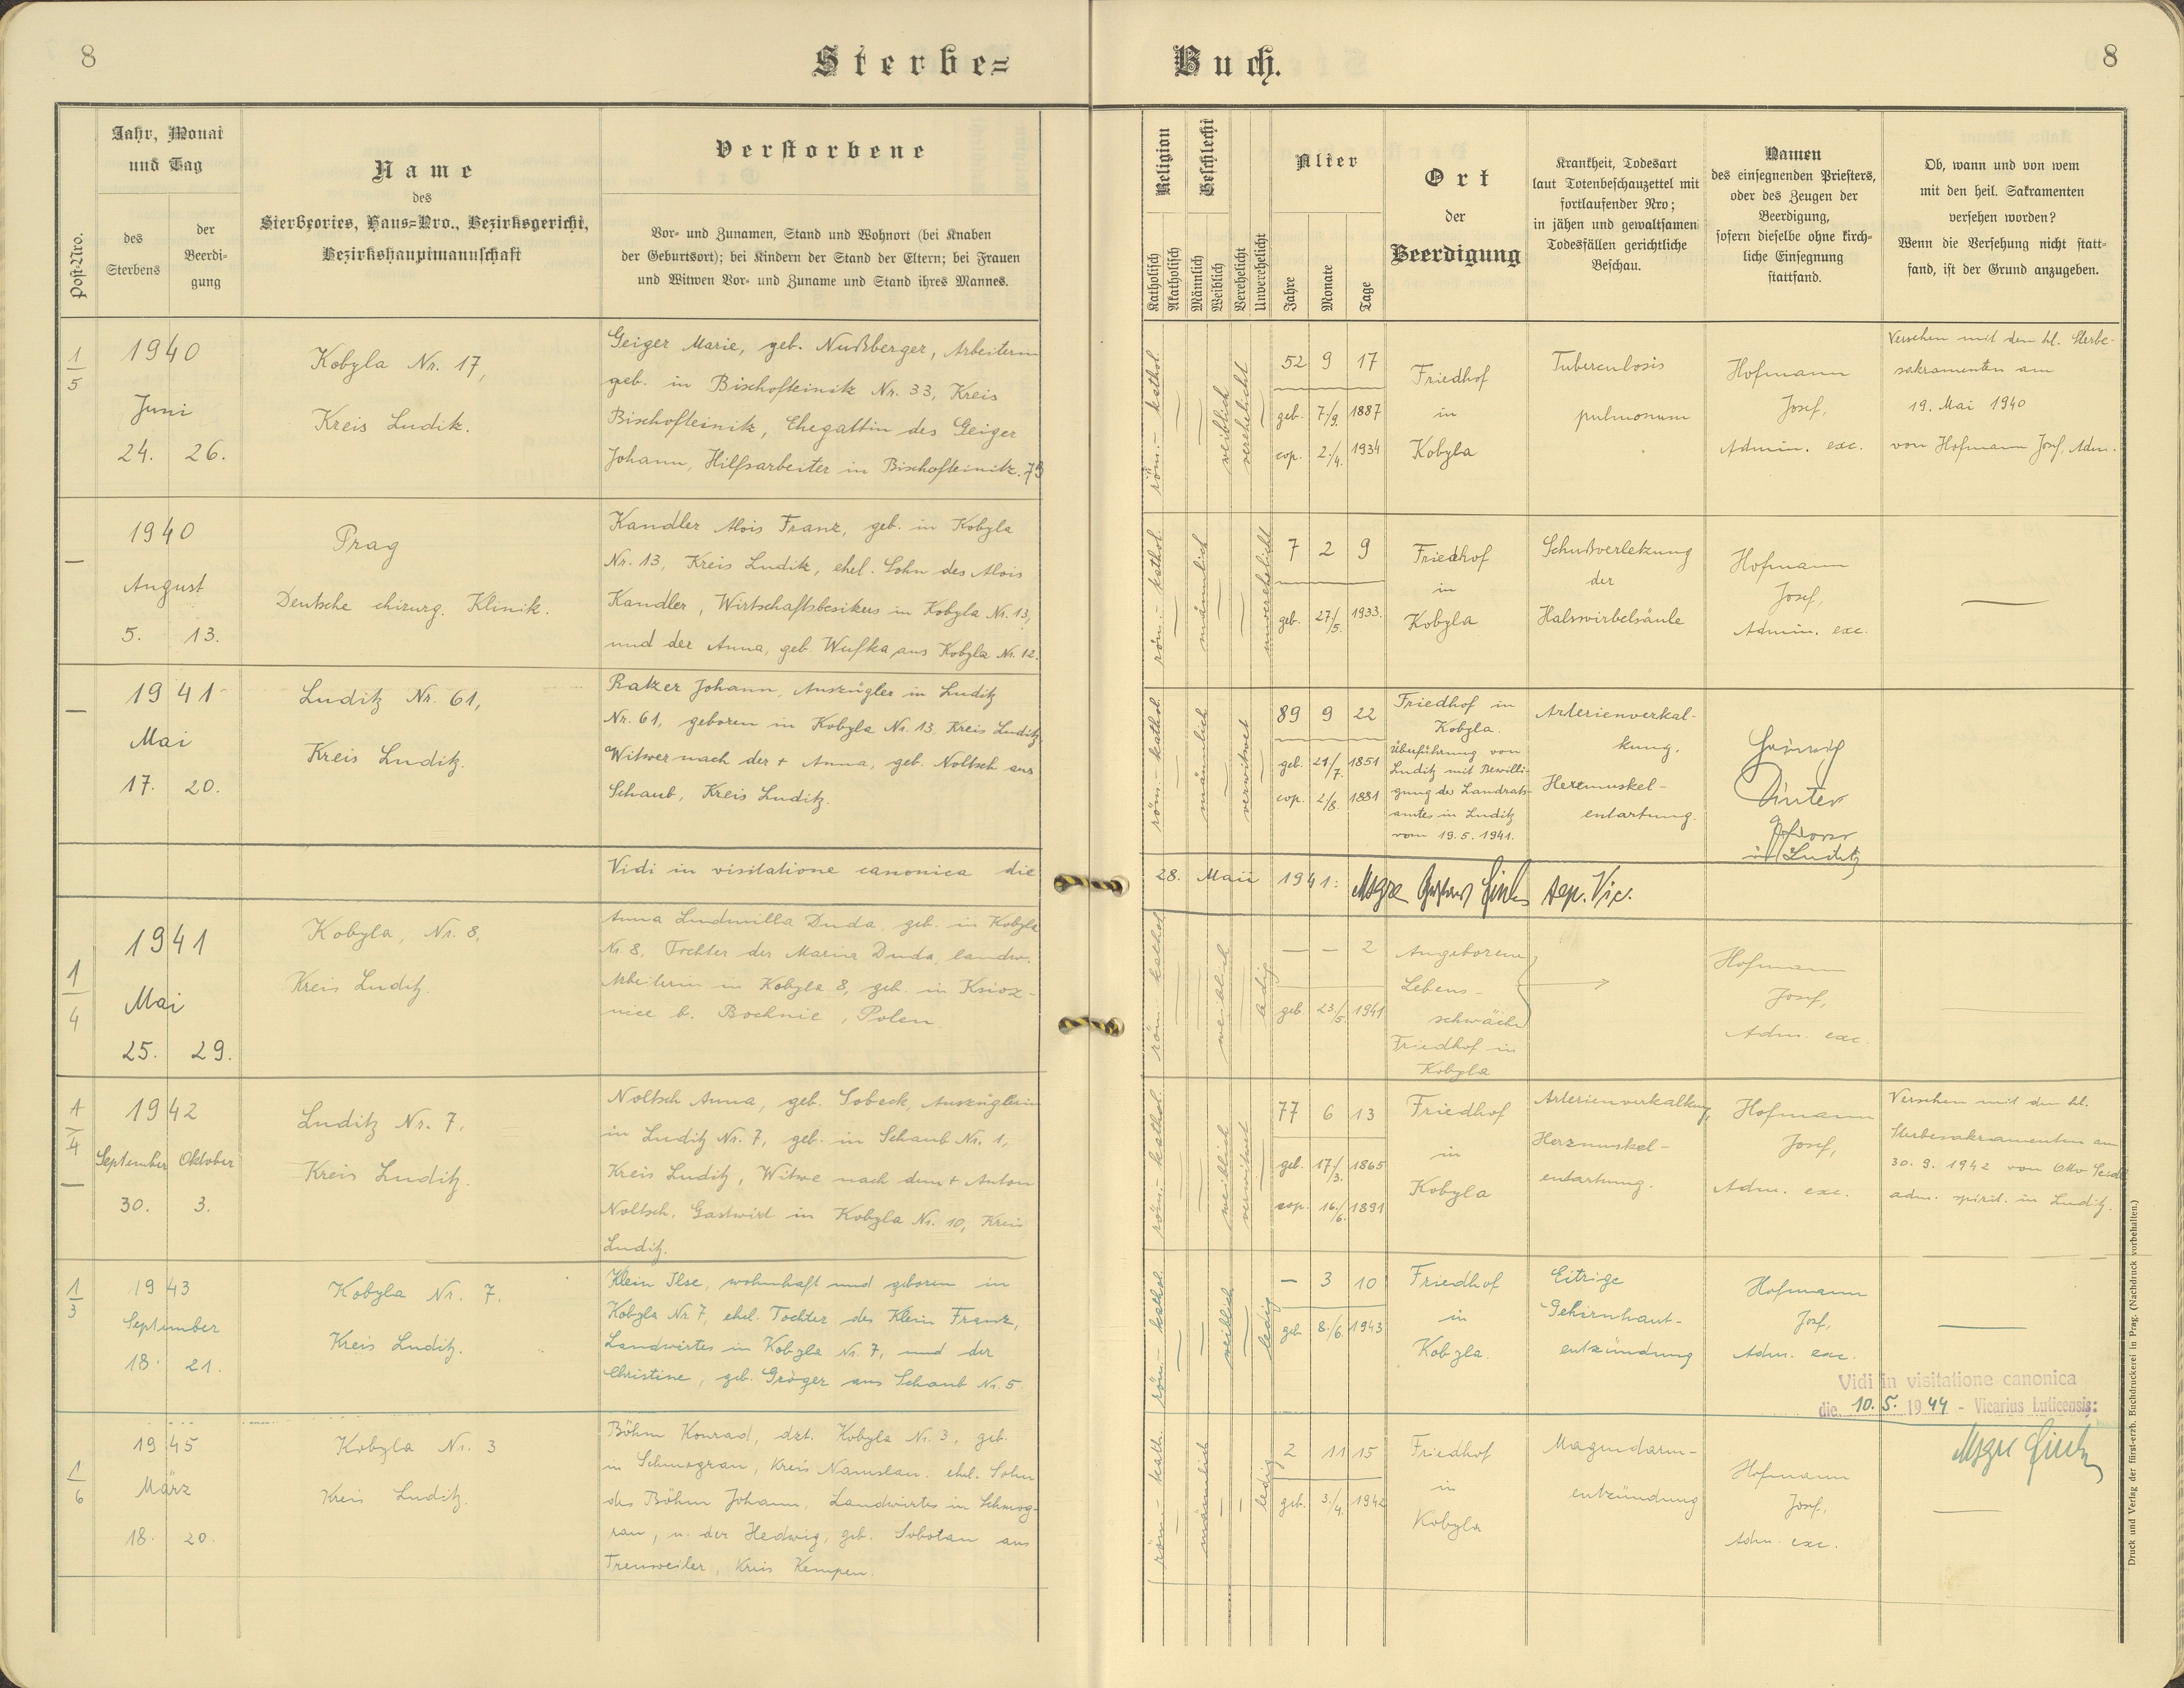 8
Sterbe=
Buch.
8
Post-Nro.
Jahr, Monat
und Tag
des
Sterbens
der
Beerdi-
gung
Name
des
Sterbeortes, Haus=Nro., Bezirksgericht,
Bezirkshauptmannschaft
Verstorbene
Vor- und Zunamen, Stand und Wohnort (bei Knaben
der Geburtsort); bei Kindern der Stand der Eltern; bei Frauen
und Witwen Vor- und Zuname und Stand ihres Mannes.
Religion
Katholisch
Akatholisch
Geschlecht
Männlich
Weiblich
Verehelicht
Unverehelicht
Alter
Jahre
Monate
Tage
Ort
der
Beerdigung
Krankheit, Todesart
laut Totenbeschauzettel mit
fortlaufender Nro;
in jähen und gewaltsamen
Todesfällen gerichtliche
Beschau.
Namen
des einsegnenden Priesters,
oder des Zeugen der
Beerdigung,
sofern dieselbe ohne kirch-
liche Einsegnung
stattfand.
Ob, wann und von wem
mit den heil. Sakramenten
versehen worden?
Wenn die Versehung nicht statt-
fand, ist der Grund anzugeben.
1/5
1940
Juni
24. 26.
Kobyla Nr. 17,
Kreis Luditz.
Geiger Marie, geb. Nußberger, Arbeiterin
geb. in Bischofteinitz Nr. 33, Kreis
Bischofteinitz, Ehegattin des Geiger
Johann, Hilfsarbeiter in Bischofteinitz. 73
röm.- kathol.
weiblich
verehelicht
52 9 17
geb. 7./9. 1887
cop. 2./4. 1934
Friedhof
in
Kobyla
Tuberculosis
pulmonum
Hofmann
Josef,
Admin. exc.
Versehen mit den hl. Sterbe-
sakramenten am
19. Mai 1940
von Hofmann Josef, Adm.
—
1940
August
5. 13.
Prag
Deutsche chirurg. Klinik.
Kandler Alois Franz, geb. in Kobyla
Nr. 13, Kreis Luditz, ehel. Sohn des Alois
Kandler, Wirtschaftsbesitzers in Kobyla Nr. 13,
und der Anna, geb. Wufka aus Kobyla Nr. 12.
röm.- kathol.
männlich
unverehelicht
7 2 9
geb. 27/5. 1933.
Friedhof
in
Kobyla
Schußverletzung
der
Halswirbelsäule
Hofmann
Josef,
Admin. exc.
—
—
1941
Mai
17. 20.
Luditz Nr. 61,
Kreis Luditz.
Ratzer Johann, Auszügler in Luditz
Nr. 61, geboren in Kobyla Nr. 13, Kreis Luditz,
Witwer nach der + Anna, geb. Noltsch aus
Schaub, Kreis Luditz.
röm.- kathol.
männlich
verwitwet
89 9 22
geb. /7. 1851
cop. 2/8. 1881
Friedhof in
Kobyla.
Überführung von
Luditz mit Bewilli-
gung des Landrats-
amtes in Luditz
vom 19.5.1941.
Arterienverkal-
kung.
Herzmuskel-
entartung.
in Luditz
Vidi in visitatione canonica die
28. Maii 1941: Msgre
1/4
1941
Mai
25. 29.
Kobyla, Nr. 8,
Kreis Luditz.
Anna Ludmilla Duda, geb. in Kobyla
Nr. 8, Tochter der Marina Duda, landw.
Arbeiterin in Kobyla 8, geb. in Ksioz-
nice b. Bochnie, Polen.
röm. kathol.
weiblich
ledig
— — 2
geb. 23./5. 1941
Angeborene
Lebens-
schwäche
Friedhof in
Kobyla
Hofmann
Josef,
Adm. exc.
—
1/4
—
1942
September Oktober
30. 3.
Luditz Nr. 7,
Kreis Luditz.
Noltsch Anna, geb. Sobeck, Auszüglerin
in Luditz Nr. 7, geb. in Schaub Nr. 1,
Kreis Luditz, Witwe nach dem + Anton
Noltsch, Gastwirt in Kobyla Nr. 10, Kreis
Luditz.
röm.- kathol.
weiblich
verwitwet
77 6 13
geb. 17/3. 1865
cop. 16./6. 1891
Friedhof
in
Kobyla
Arterienverkalkung,
Herzmuskel-
entartung.
Hofmann
Josef,
Adm. exc.
Versehen mit den hl.
Sterbesakramenten am
30. 9. 1942 von Otto
adm. spirit. in Luditz.
1/3
1943
September
18. 21.
Kobyla Nr. 7.
Kreis Luditz.
Klein Ilse, wohnhaft und geboren in
Kobyla Nr. 7, ehel. Tochter des Klein Franz,
Landwirtes in Kobyla Nr. 7, und der
Christine, geb. Gröger aus Schaub Nr. 5.
röm.- kathol.
weiblich
ledig
— 3 10
geb. 8./6. 1943
Friedhof
in
Kobyla.
Eitrige
Gehirnhaut-
entzündung
Hofmann
Josef,
Adm. exc.
—
Vidi in visitatione canonica
die 10. 5. 1944 - Vicarius Luticensis:
Msgre
1/6
1945
März
18. 20.
Kobyla Nr. 3
Kreis Luditz.
Böhm Konrad, dzt. Kobyla Nr. 3, geb.
in Schmograu, Kreis Namslau, ehel. Sohn
des Böhm Johann, Landwirtes in Schmog-
rau, u. der Hedwig, geb. Sobotan aus
Treuweiler, Kreis Kempen.
röm.- kath.
männlich
ledig
2 11 15
geb. 3./4. 1942
Friedhof
in
Kobyla
Magendarm-
entzündung
Hofmann
Josef,
Adm. exc.
—
Druck und Verlag der fürst-erzb. Buchdruckerei in Prag. (Nachdruck vorbehalten.)